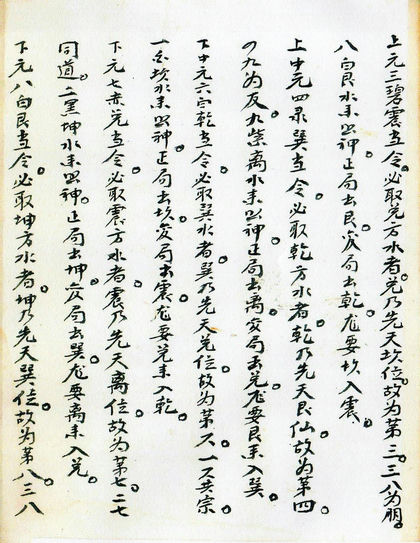 上元三碧震当令。必取兑方水者。兑乃先天坎位。故为第三。三八为朋。
八白艮水来照神。正局去艮。变局去乾。龙要坎入震。
上中元四录巽当令。必取乾方水者。乾乃先天艮仙。故为第四。
四九为友。九紫离水来照神。正局去离。变局去兑。龙要艮来入巽。
下中元六白乾当令。必取巽水者。巽乃先天兑位。故为第六。一六共宗。
一白坎水来照神。正局去坎。变局去震。龙要兑来入乾。
下元七赤兑当令。必取震方水者。震乃先天离位。故为第七。二七
同道。二黑坤水来照神。正局去坤。变局去巽。龙要离来入兑。
下元八白艮当令。必取坤方水者。坤乃先天巽位。故为第八。三八